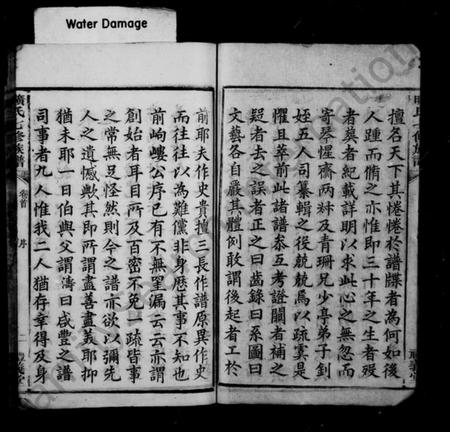 Water Damage
擅名天下其惓惓於譜牒者為何如後
人踵而脩之亦惟即三十年之生者歿
者葬者紀載詳明以求此心之無忽而
寄琴惺齋兩叔及青珊兄少亭弟子釗
姪五人司纂輯之役兢兢焉以疏雺是
懼且萃前此諸譜泰五考證闕者補之
疑者去之誤者正之曰齒錄曰系圖曰
文藝各自嚴其體例敢謂後起者工於
前耶夫作史貴擅三長作譜原異作史
而往往以為難儻非身歷其事不知也
前岣嶁公序已有不無罣漏云云亦謂
創始者耳目所及百密不免一疏皆事
之常無足怪然則今之譜亦欲以彌先
人之遺憾歟其即所謂盡善盡美耶抑
猶未耶一日伯與父謂濤曰咸豐之譜
司事者九人惟我二人猶存幸得及身
氏七修族譜
卷首
序
二